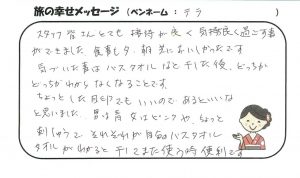 旅の幸せメッセージ（ペンネーム：テラ　）
スタッフ皆さんとても接待が良く気持良く過ごす事
ができました。食事も夕、朝共においしかったです
気づいた事はバスタオルなど干した後、どっちが
どっちかわからなくなることです。
ちょっとした目印でもいいので、あるといいな
と思いました。男は青 女はピンクや、ちょっと
刺しゅうで それぞれが自分のバスタオル
タオルがわかると干してまた使う時便利です